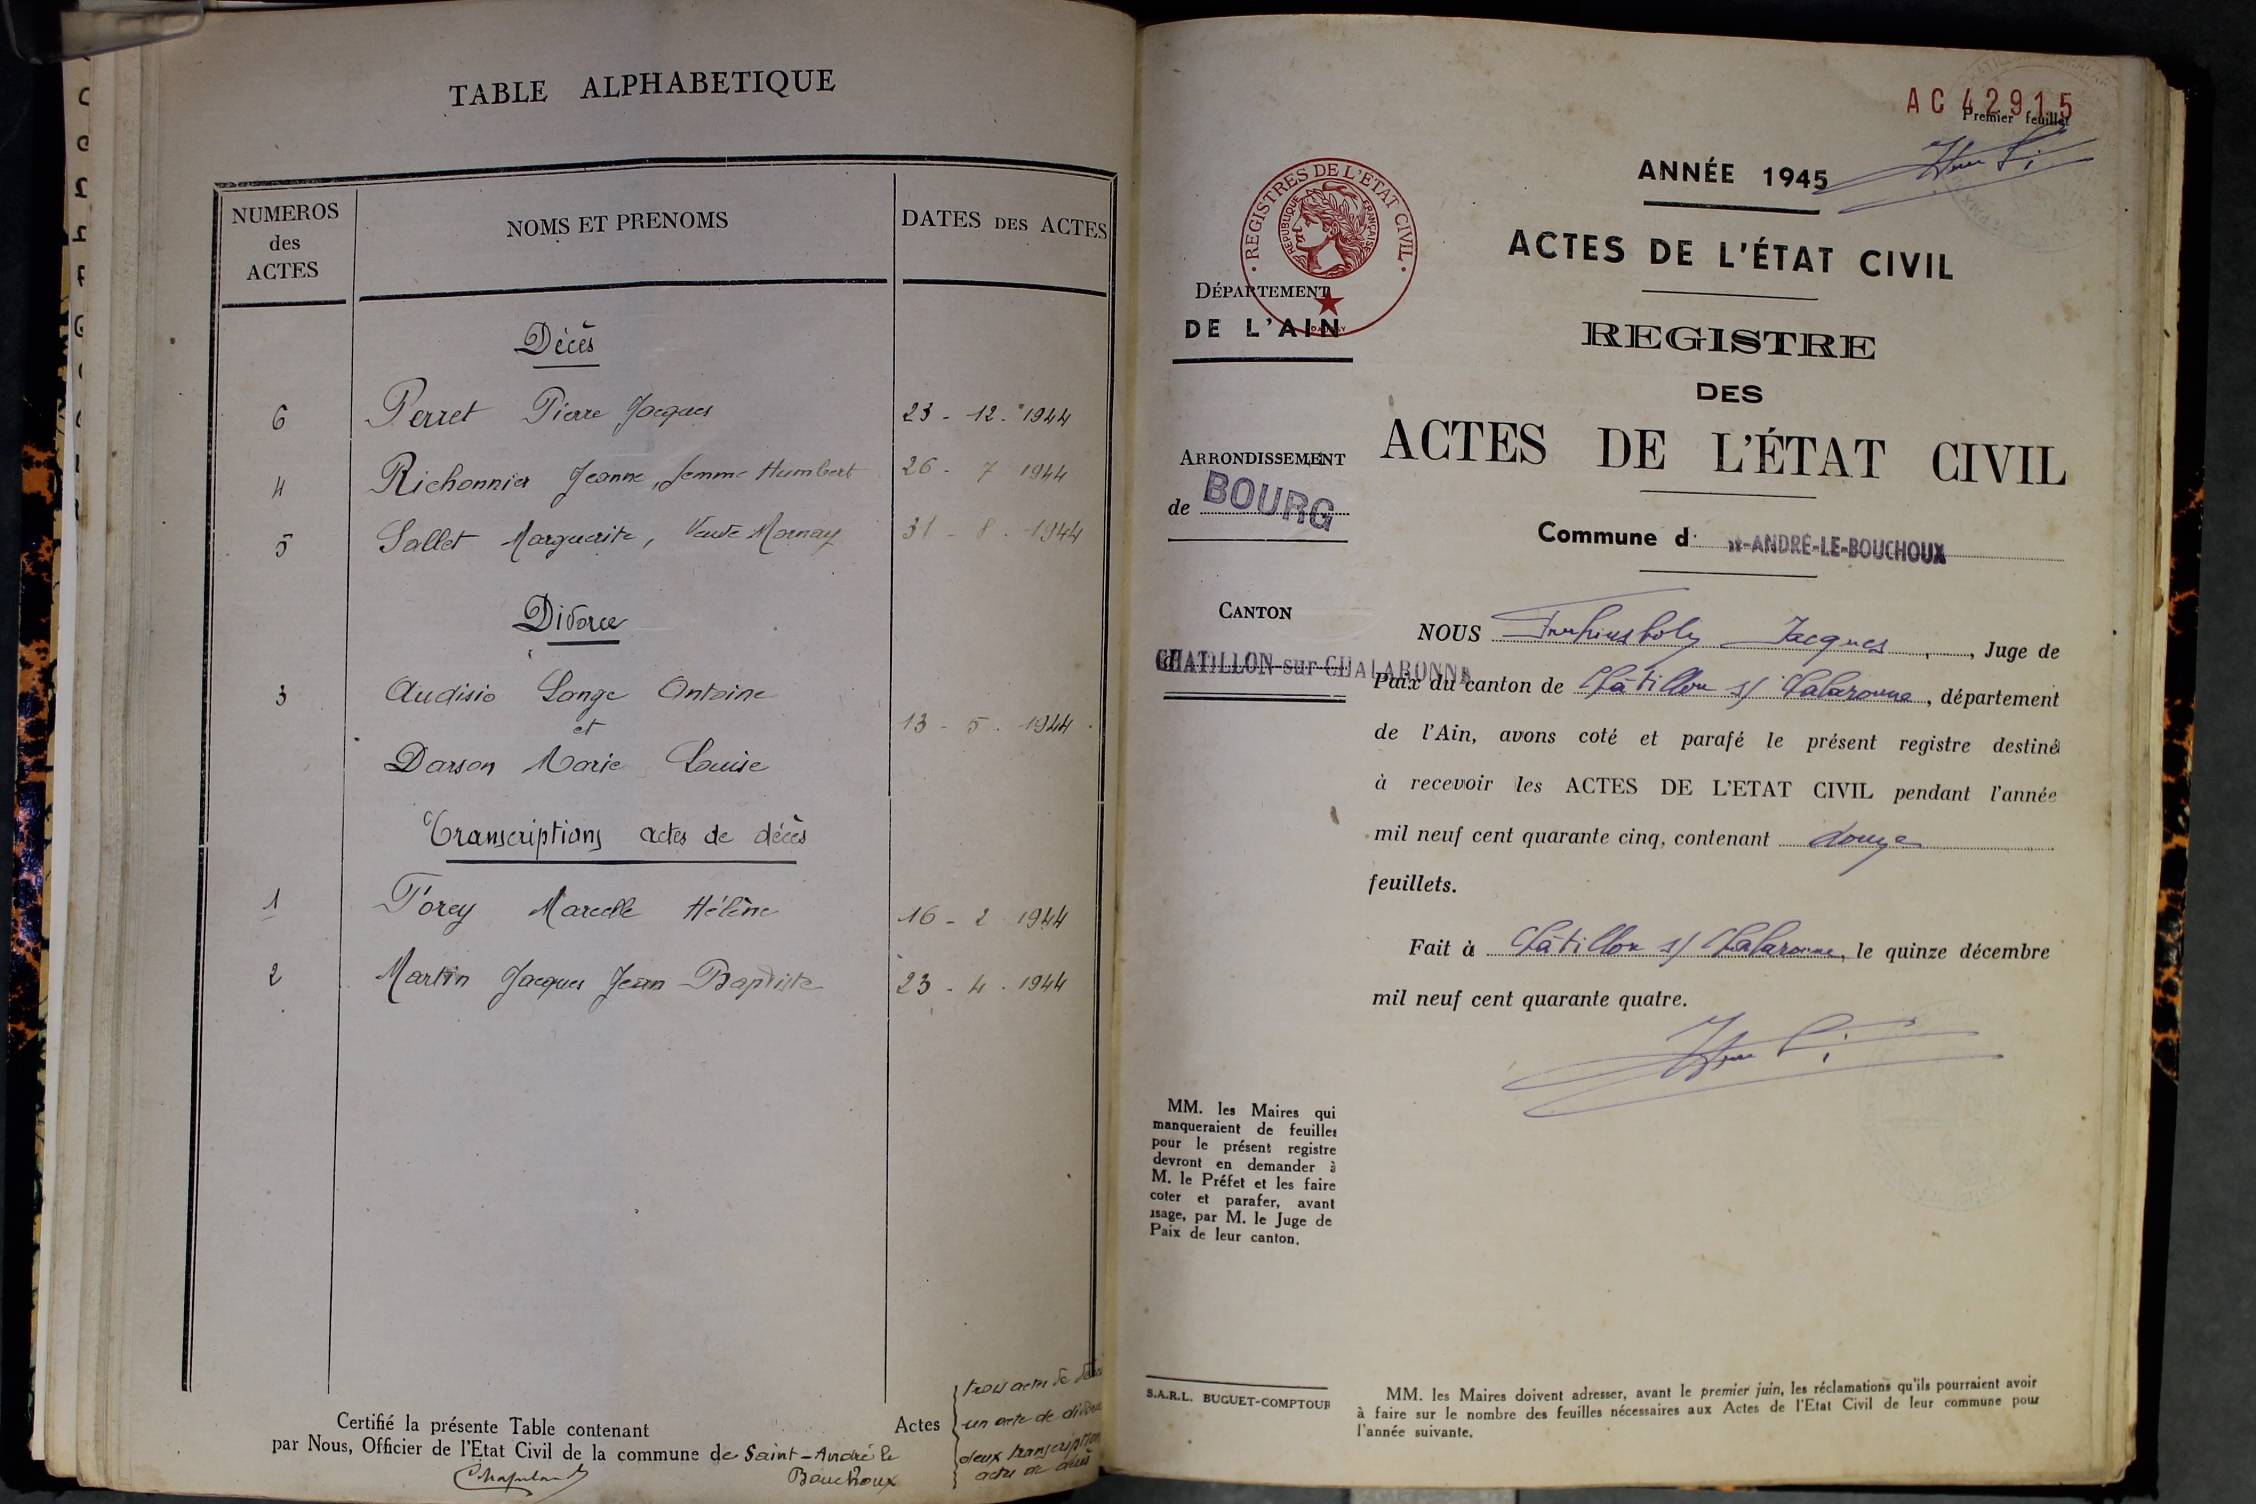 TABLE ALPHABETIQUE
NUMEROS
des
ACTES
NOMS ET PRENOMS
DATES DES ACTES
Décès
6 Perret Pierre Jacques 23 - 12 - 1944
4 Richonnier Jeanne, femme Humbert 26 - 7 1944
5 Sallet Marguerite, Veuve Mornay 31 - 8 - 1944
Divorce
3 Audisio Lange Antoine
et
13 - 5 - 1944
Darson Marie Louise
Transcriptions actes de décès
1 Forey Marcelle Hélène 16 - 2 1944
2 Martin Jacques Jean-Baptiste 23 - 4 - 1944
Certifié la présente Table contenant Actes
trois actes de
un acte de divorce
deux transcription
actes de décès
par Nous, Officier de l'Etat Civil de la commune de Saint-André le
Bouchoux
AC 42915
Premier feuillet
ANNÉE 1945
ACTES DE L'ÉTAT CIVIL
REGISTRES DE L'ETAT CIVIL
REPUBLIQUE FRANÇAISE
DÉPARTEMENT
DE L'AIN
REGISTRE
DES
ACTES DE L'ÉTAT CIVIL
ARRONDISSEMENT
de BOURG
Commune d ST-ANDRÉ-LE-BOUCHOUX
CANTON
CHATILLON-sur-CHALARONNE
NOUS Jacques, Juge de
Paix du canton de Châtillon s/ Chalaronne, département
de l'Ain, avons coté et parafé le présent registre destiné
à recevoir les ACTES DE L'ETAT CIVIL pendant l'année
mil neuf cent quarante cinq, contenant douze
feuillets.
Fait à Châtillon s/ Chalaronne, le quinze décembre
mil neuf cent quarante quatre.
MM. les Maires qui
manqueraient de feuilles
pour le présent registre
devront en demander à
M. le Préfet et les faire
coter et parafer, avant
usage, par M. le Juge de
Paix de leur canton.
S.A.R.L. BUGUET-COMPTOUR
MM. les Maires doivent adresser, avant le premier juin, les réclamations qu'ils pourraient avoir
à faire sur le nombre des feuilles nécessaires aux Actes de l'Etat Civil de leur commune pour
l'année suivante.